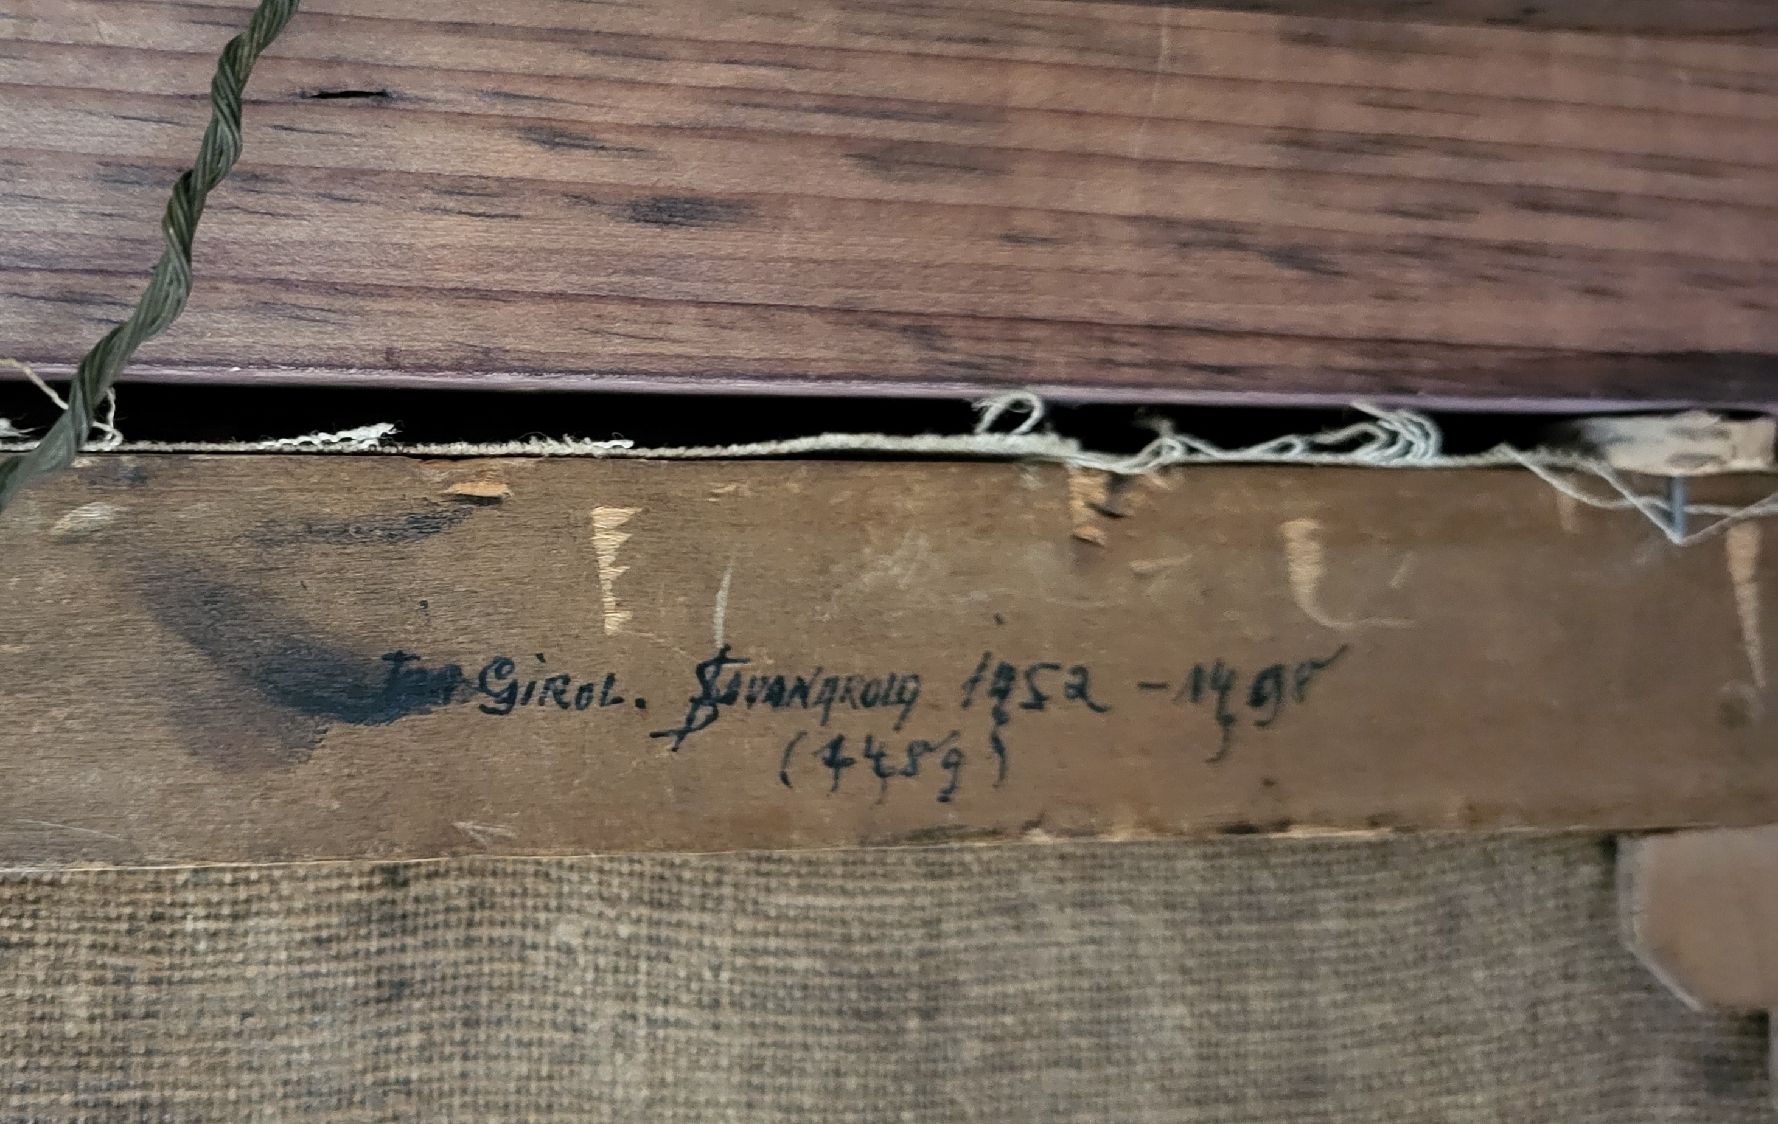 Girol. Savanarola 1452 - 1498
(1489)